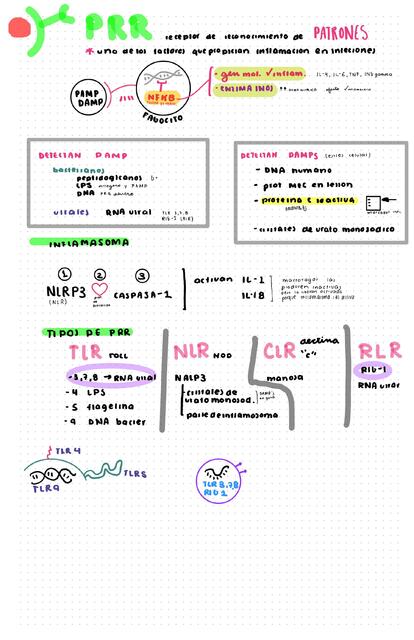 PRR receptor de reconocimiento de PATRONES
* uno de los factores que propician inflamación en infeciones
PAMP
DAMP
NFKB
FAGOCITO
- gen mol. ✓ inflam. IL-8, IL-6, TNF, INF gamma
- ENZIMA INOS
DETECTAN PAMP
bacterianos
peptidoglicanos b+
LPS
DNA
virales RNA viral TLR 3,7,8
RIG-1 (RLR)
DETECTAN DAMPS (estres celular)
- DNA humano
- prot MEC en lesion
- proteina C reactiva
- cristales de urato monosodico
INFLAMASOMA
① ② ③
NLRP3 CASPASA-1
(NLR)
activan IL-1
IL-1B
TIPOS DE PRR
TLR TOLL
- 3,7,8 → RNA viral
- 4 LPS
- 5 flagelina
- 9 DNA bacter
NLR NOD
NALP3
- cristales de
urato monosod.
- parte de inflamosoma
CLR lectina
"C"
manosa
RLR
RIG-1
RNA viral
TLR 4
TLR5
TLR9
TLR 3,7,8
RIG 1